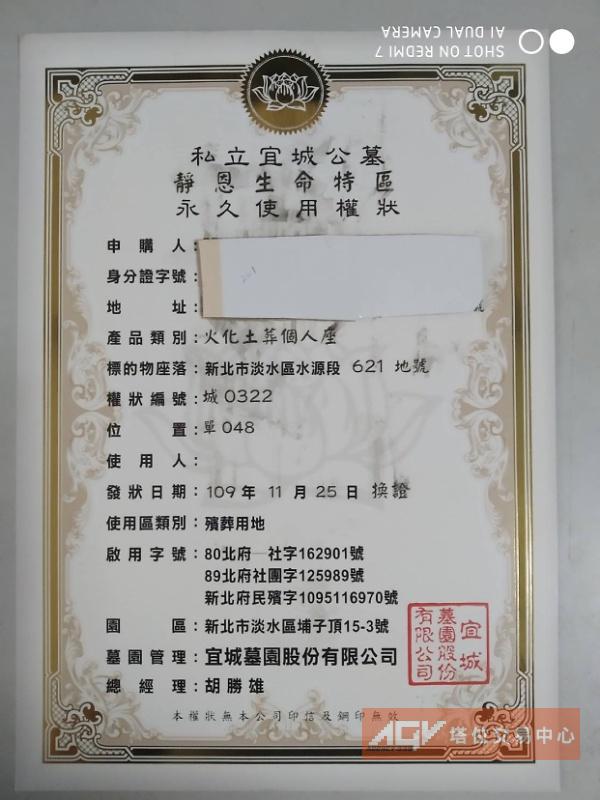 SHOT ON REDMI 7
AI DUAL CAMERA
私立宜城公墓
靜恩生命特區
永久使用權狀
申購人：
身分證字號：
地址：
號
產品類別：火化土葬個人座
標的物座落：新北市淡水區水源段 621 地號
權狀編號：城 0322
位置：單 048
使用人：
發狀日期：109 年 11 月 25 日 換證
使用區類別：殯葬用地
啟用字號：80北府一社字162901號
89北府社團字125989號
新北府民殯字1095116970號
園區：新北市淡水區埔子頂15-3號
墓園管理：宜城墓園股份有限公司
總經理：胡勝雄
宜城
墓園股份
有限公司
本權狀無本公司印信及鋼印無效
AGV 塔位交易中心